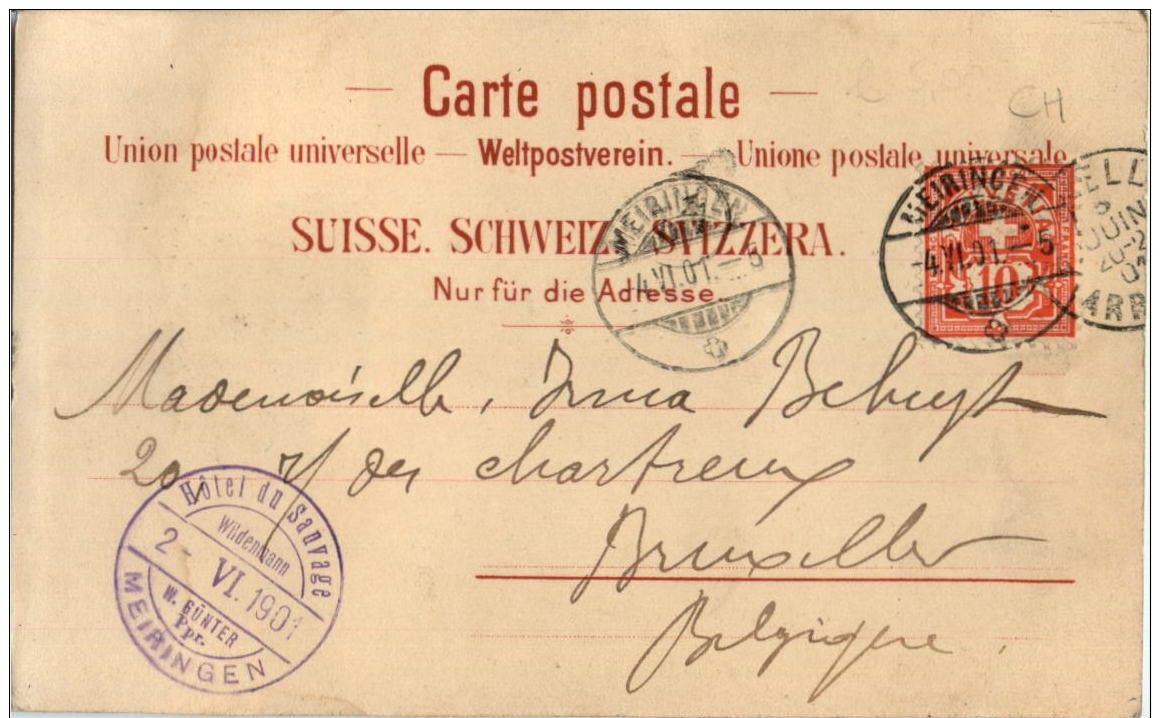 Carte postale
CH
Union postale universelle — Weltpostverein. — Unione postale universale
SUISSE. SCHWEIZ. SVIZZERA.
Nur für die Adresse.
MEIRINGEN
4.VI.01.-5
MEIRINGEN
4.VI.01.-5
10
JUIN
Mademoiselle, Irma
20 des chartreux
Bruxelles
Belgique.
Hôtel du Sauvage
Wildenmann
2- VI. 1901
W. GÜNTER
Ppr.
MEIRINGEN